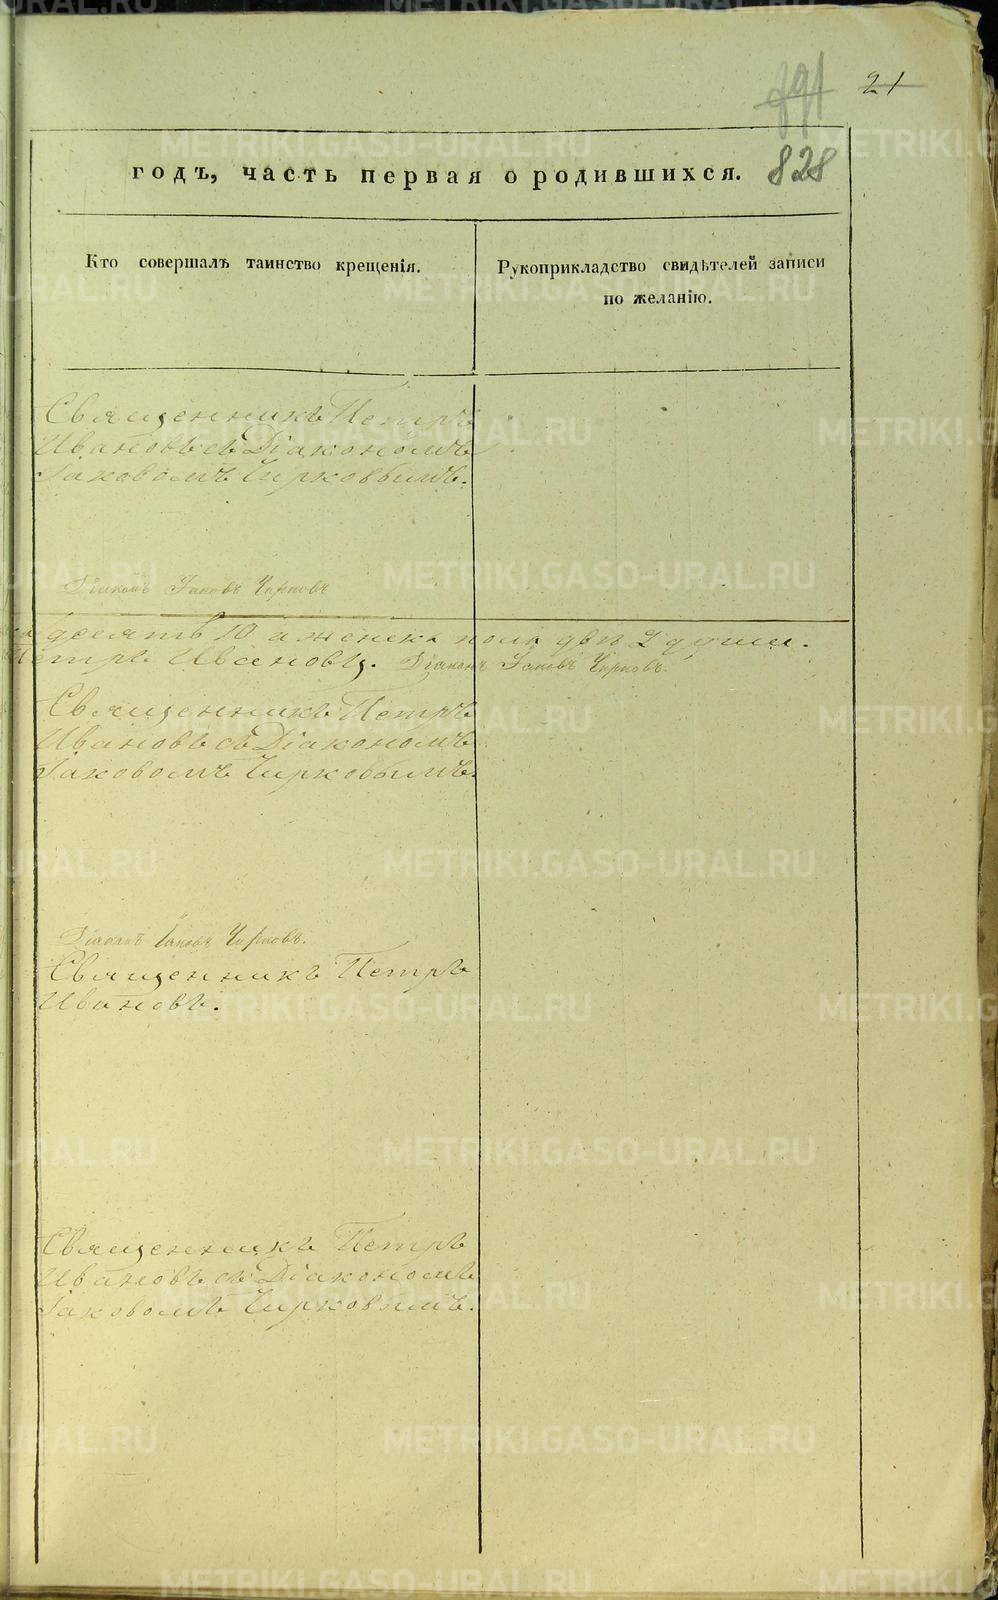 791 21
годъ, часть первая о родившихся. 828
Кто совершалъ таинство крещенія.
Рукоприкладство свидѣтелей записи
по желанію.
Священникъ Петръ
Ивановъ съ Діакономъ
Іаковомъ Чирковымъ.
Діаконъ Іаковъ Чирковъ
десять 10 а женска пола двѣ 2 души.
Петръ Ивановъ. Діаконъ Іаковъ Чирковъ.
Священникъ Петръ
Ивановъ съ Діакономъ
Іаковомъ Чирковымъ.
Діаконъ Іаковъ Чирковъ.
Священникъ Петръ
Ивановъ.
Священникъ Петръ
Ивановъ съ Діакономъ
Іаковомъ Чирковымъ.
METRIKI.GASO-URAL.RU